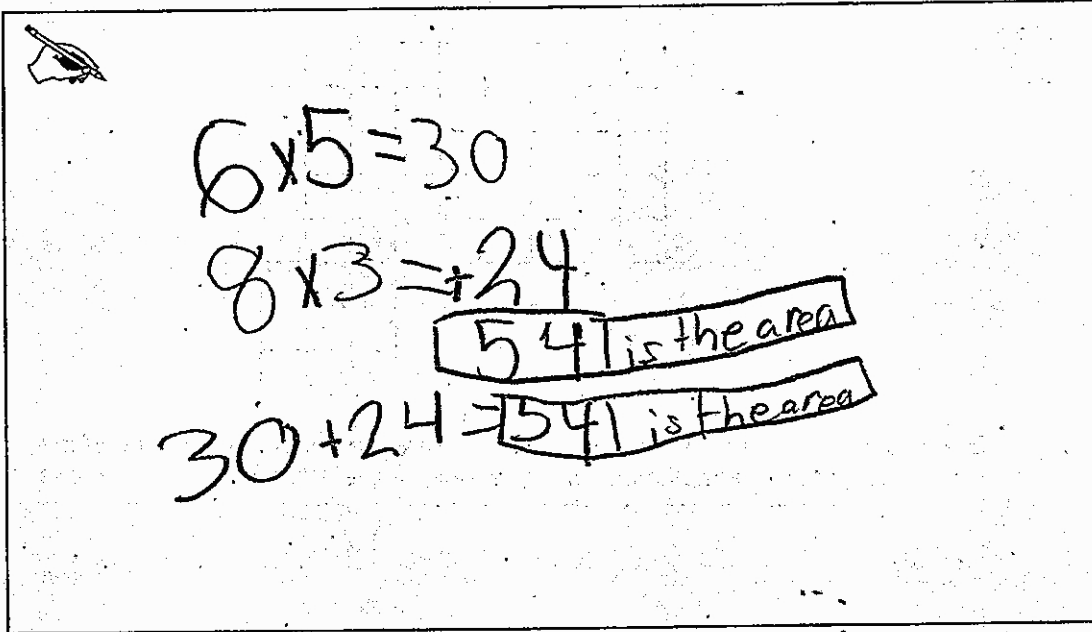 6x5=30
8x3=+24
54 is the area
30+24=54 is the area